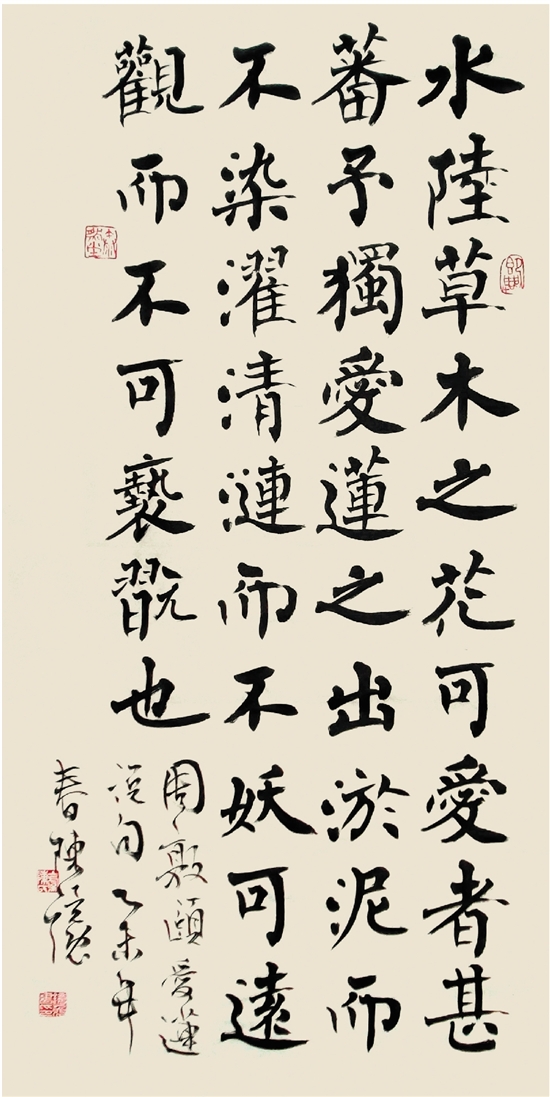 水陸草木之花可愛者甚
蕃予獨愛蓮之出淤泥而
不染濯清漣而不妖可遠
觀而不可褻翫也
周敦頤愛蓮
說句乙未年
春陳